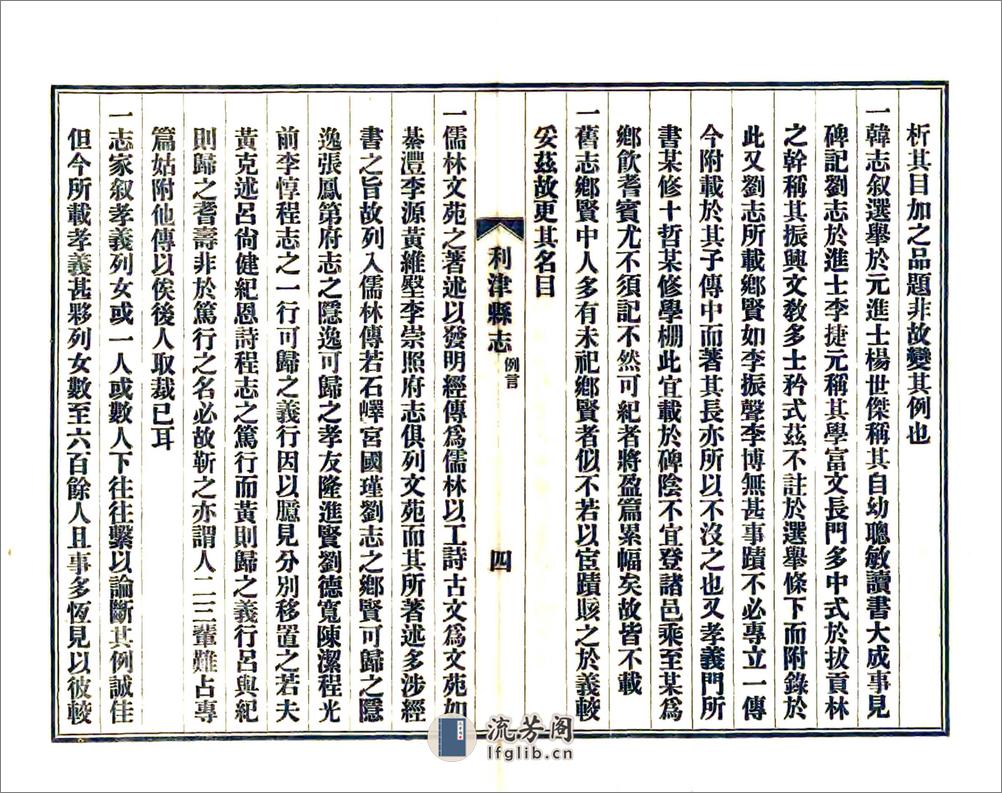 析其目加之品題非故變其例也
一韓志叙選舉於元進士楊世傑稱其自幼聰敏讀書大成事見
碑記劉志於進士李捷元稱其學富文長門多中式於拔貢林
之幹稱其振興文敎多士矜式茲不註於選舉條下而附錄於
此又劉志所載鄉賢如李振聲李博無甚事蹟不必專立一傳
今附載於其子傳中而著其長亦所以不沒之也又孝義門所
書某修十哲某修學棚此宜載於碑陰不宜登諸邑乘至某爲
鄉飲耆賓尤不須記不然可紀者將盈篇累幅矣故皆不載
一舊志鄉賢中人多有未祀鄉賢者似不若以宦蹟賅之於義較
妥茲故更其名目
利津縣志 例言 四
一儒林文苑之著述以發明經傳爲儒林以工詩古文爲文苑如
綦灃李源黃維壂李崇照府志俱列文苑而其所著述多涉經
書之旨故列入儒林傳若石嶧宮國瑾劉志之鄉賢可歸之隱
逸張鳳第府志之隱逸可歸之孝友隆進賢劉德寬陳潔程光
前李惇程志之一行可歸之義行因以臆見分別移置之若夫
黃克述呂尙健紀恩詩程志之篤行而黃則歸之義行呂與紀
則歸之耆壽非於篤行之名必故靳之亦謂人二三輩難占專
篇姑附他傳以俟後人取裁已耳
一志家叙孝義列女或一人或數人下往往繫以論斷其例誠佳
但今所載孝義甚夥列女數至六百餘人且事多恆見以彼較
流芳阁
lfglib.cn